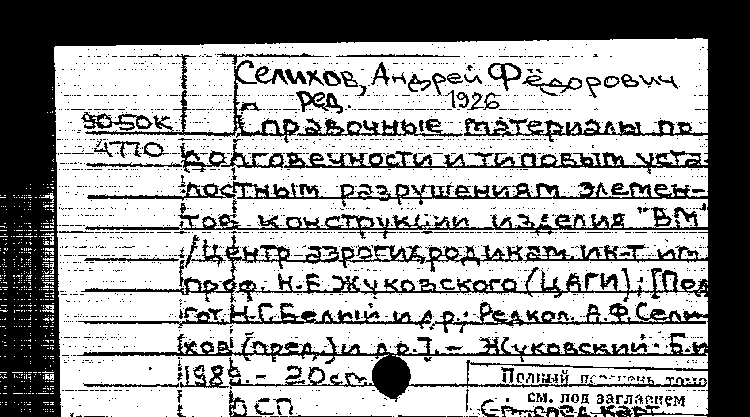 Селихов, Андрей Фёдорович
ред. 1926
90-50К Справочные материалы по
4770 долговечности и типовым уста-
лостным разрушениям элемен-
тов конструкции изделия "ВМ"
/Центр. аэрогидродинам. ин-т им.
проф. Н.Е. Жуковского (ЦАГИ); [Под
гот. Н.Г. Белый и др.; Редкол. А.Ф. Сели-
хов (пред.) и др.]. - Жуковский: Б.и
1989. - 20 см.
Полный перечень томо
см. под заглавием
ДСП